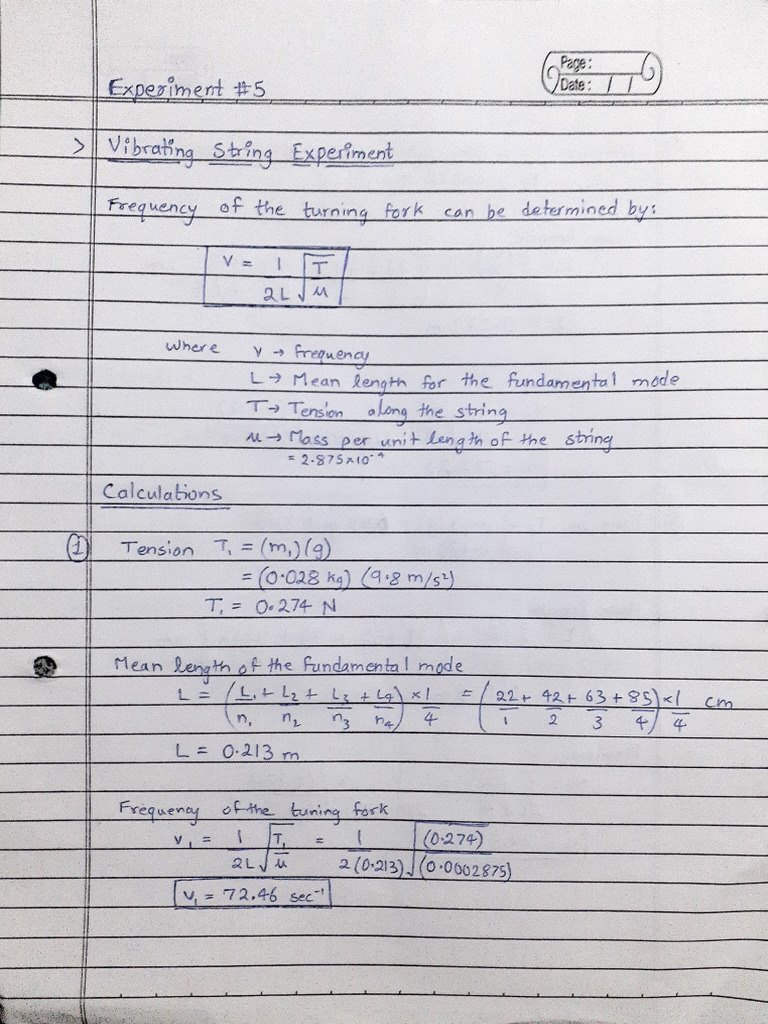 Page:
Date: / /
Experiment #5
> Vibrating String Experiment
Frequency of the turning fork can be determined by:
ν = 1/2L √(T/μ)
where ν → frequency
L → Mean length for the fundamental mode
T → Tension along the string
μ → Mass per unit length of the string
= 2.875×10⁻⁴
Calculations
① Tension T₁ = (m₁)(g)
= (0.028 kg) (9.8 m/s²)
T₁ = 0.274 N
Mean length of the fundamental mode
L = (L₁/n₁ + L₂/n₂ + L₃/n₃ + L₄/n₄) × 1/4 = (22/1 + 42/2 + 63/3 + 85/4) × 1/4 cm
L = 0.213 m
Frequency of the tuning fork
ν₁ = 1/2L √(T₁/μ) = 1/2(0.213) √((0.274)/(0.0002875))
ν₁ = 72.46 sec⁻¹